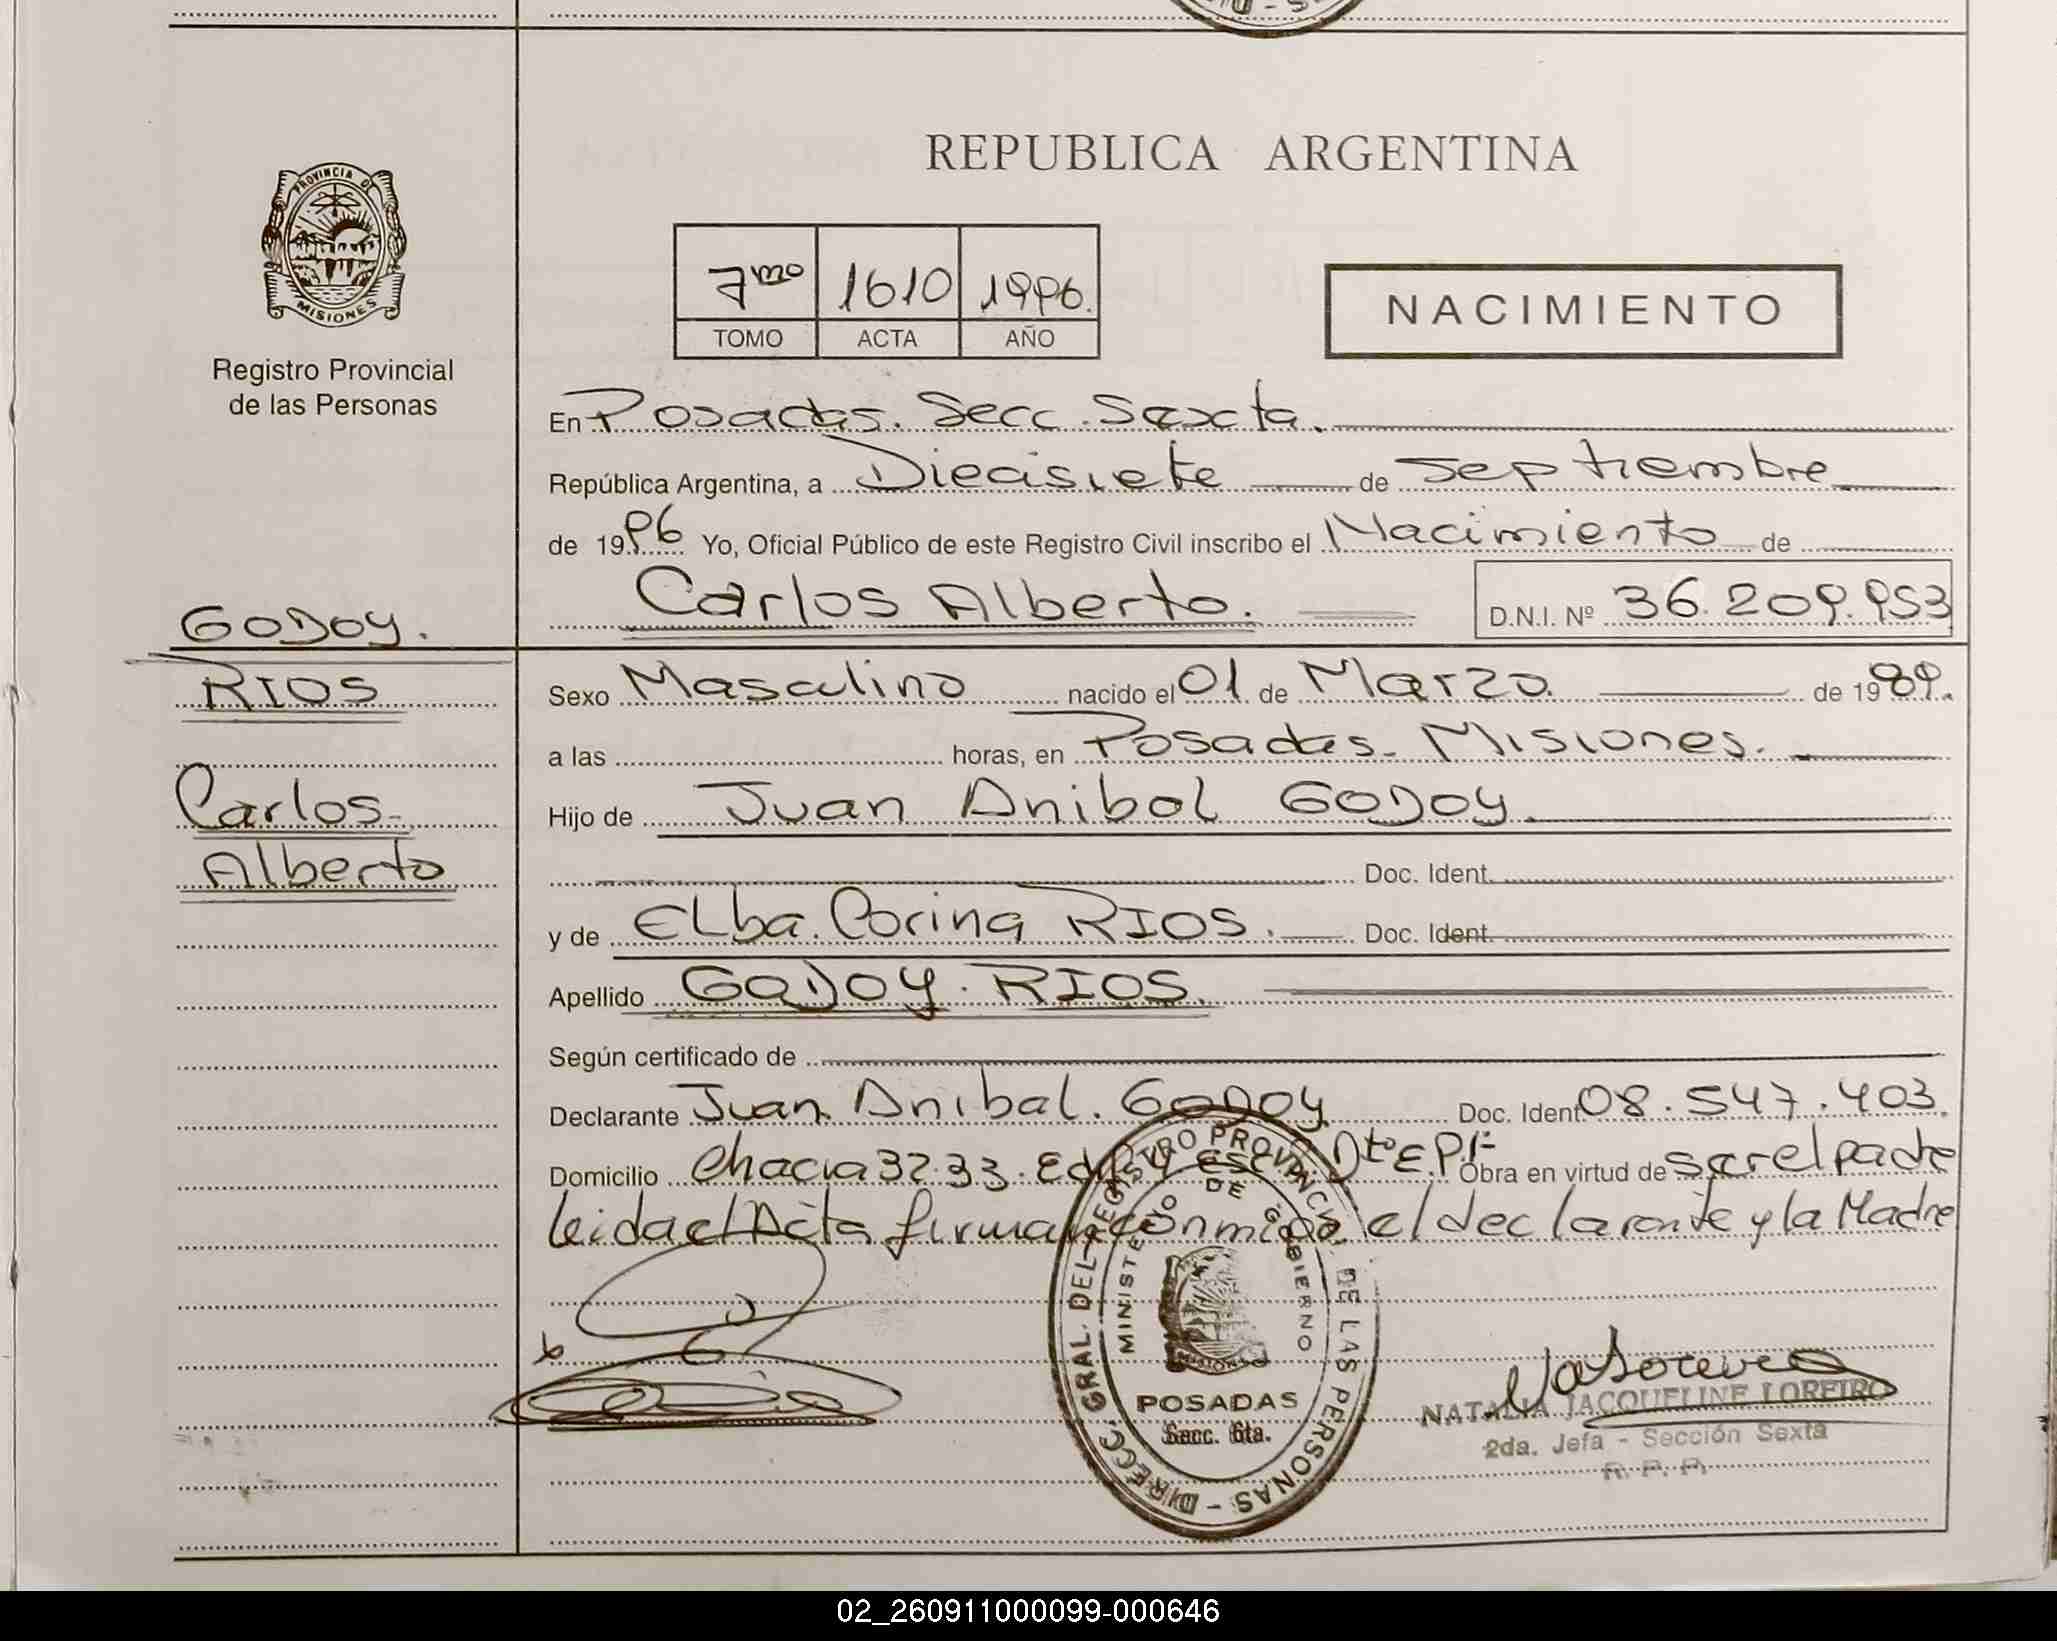 REPUBLICA ARGENTINA
PROVINCIA DE
MISIONES
Registro Provincial
de las Personas
7mo 1610 1996.
TOMO ACTA AÑO
NACIMIENTO
En Posadas. Secc. Sexta.
República Argentina, a Diecisiete de Septiembre
de 1996 Yo, Oficial Público de este Registro Civil inscribo el Nacimiento de
Carlos Alberto. D.N.I. Nº 36.209.953
GODOY.
RIOS
Carlos
Alberto
Sexo Masculino nacido el 01. de Marzo. de 1989.
a las horas, en Posadas - Misiones.
Hijo de Juan Anibal GODOY
Doc. Ident.
y de Elba. Corina RIOS. Doc. Ident.
Apellido GODOY. RIOS.
Según certificado de
Declarante Juan Anibal. GODOY Doc. Ident. 08.547.403.
Domicilio Chacra 32.33. Dto E.P.F Obra en virtud de ser el padre
leida el Acta firman conmigo el declarante y la Madre
DIRECC. GRAL. DEL REGISTRO PROVINCIAL DE LAS PERSONAS -
MINISTERIO DE GOBIERNO
MISIONES
POSADAS
Secc. 6ta.
NATALIA JACQUELINE LOREIRO
2da. Jefa - Sección Sexta
R. P. P.
02_260911000099-000646